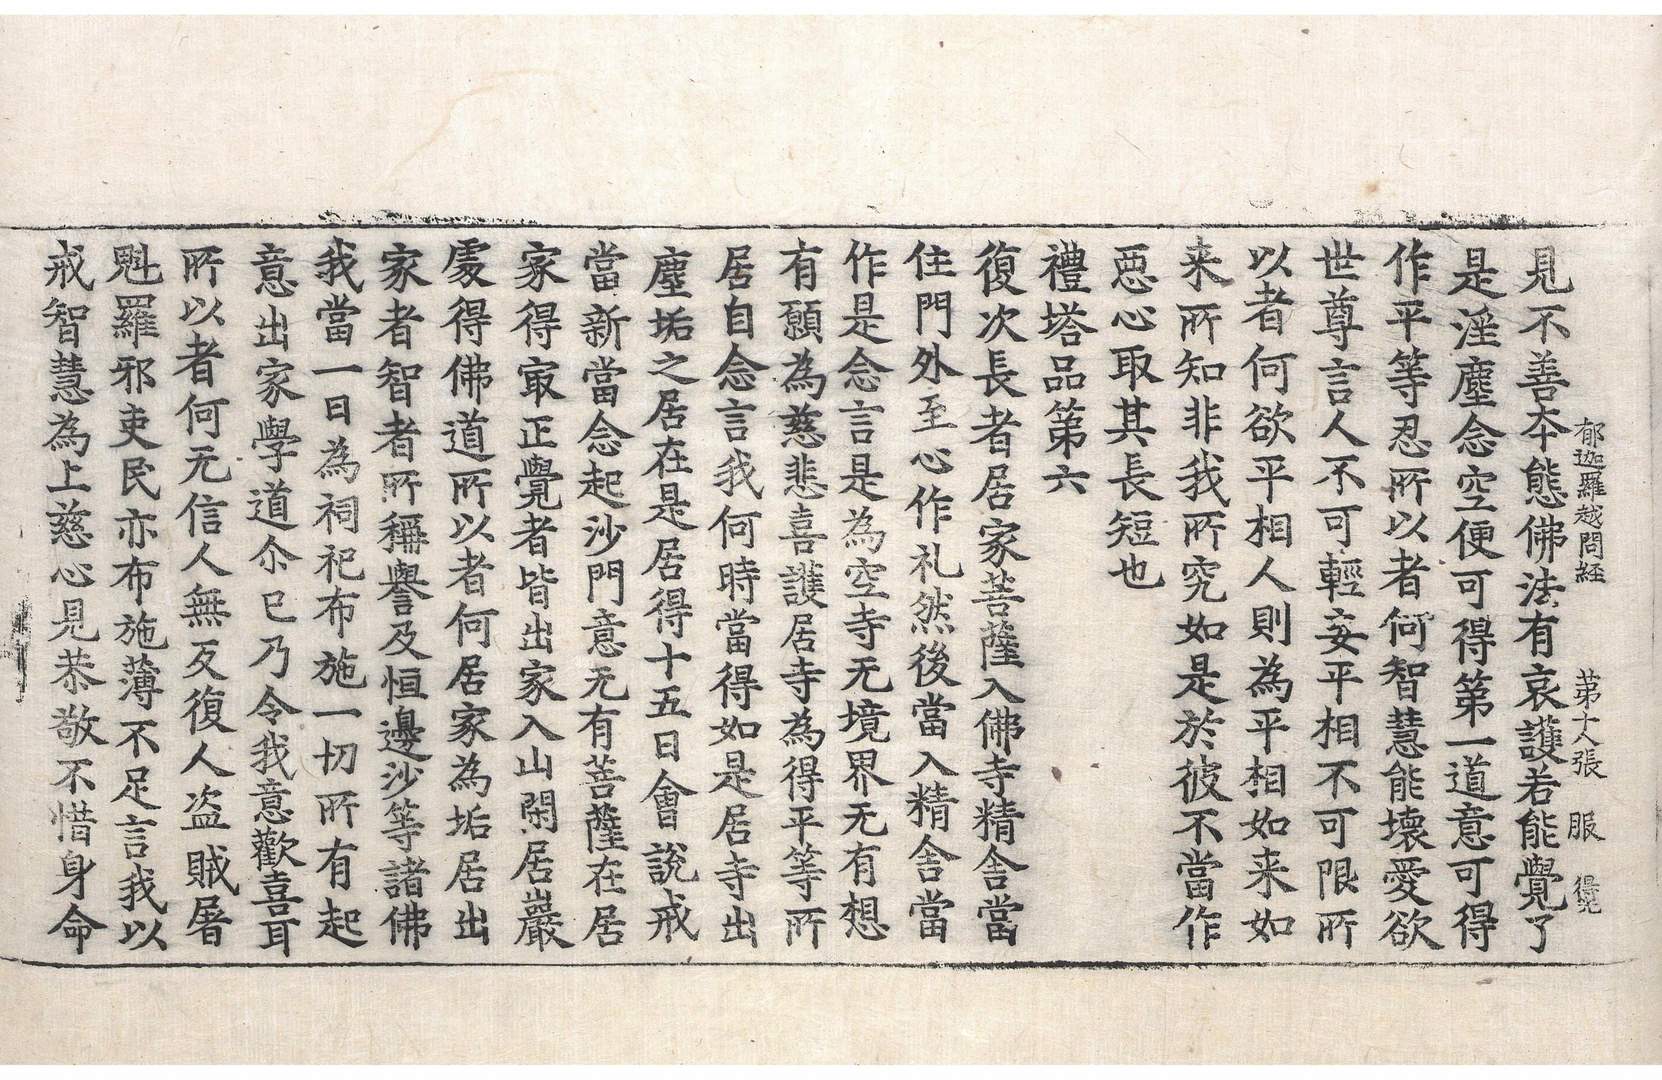 郁迦羅越問経 第十八張 服 得光
見不善本態佛法有哀護若能覺了
是淫塵念空便可得第一道意可得
作平等忍所以者何智慧能壞愛欲
世尊言人不可輕妄平相不可限所
以者何欲平相人則為平相如来如
来所知非我所究如是於彼不當作
惡心取其長短也
禮塔品第六
復次長者居家菩薩入佛寺精舎當
住門外至心作礼然後當入精舎當
作是念言是為空寺无境界无有想
有願為慈悲喜護居寺為得平等所
居自念言我何時當得如是居寺出
塵垢之居在是居得十五日會說戒
當新當念起沙門意无有菩薩在居
家得㝡正覺者皆出家入山閑居巖
處得佛道所以者何居家為垢居出
家者智者所稱譽及恒邊沙等諸佛
我當一日為祠祀布施一切所有起
意出家學道尒已乃令我意歡喜耳
所以者何无信人無反復人盗賊屠
魁羅邪吏民亦布施薄不足言我以
戒智慧為上慈心見恭敬不惜身命